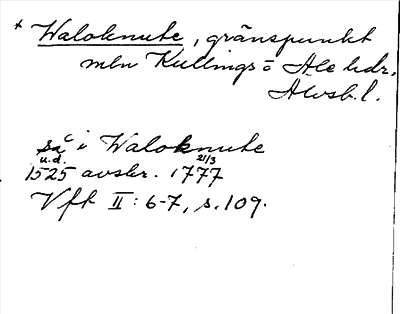 * Waloknute, gränspunkt
mln Kullings o Ale hdr,
Älvsb. l.
så i Waloknute
u.d.
1525 avskr. 21/3 1777
Vft II: 6-7, s. 109.